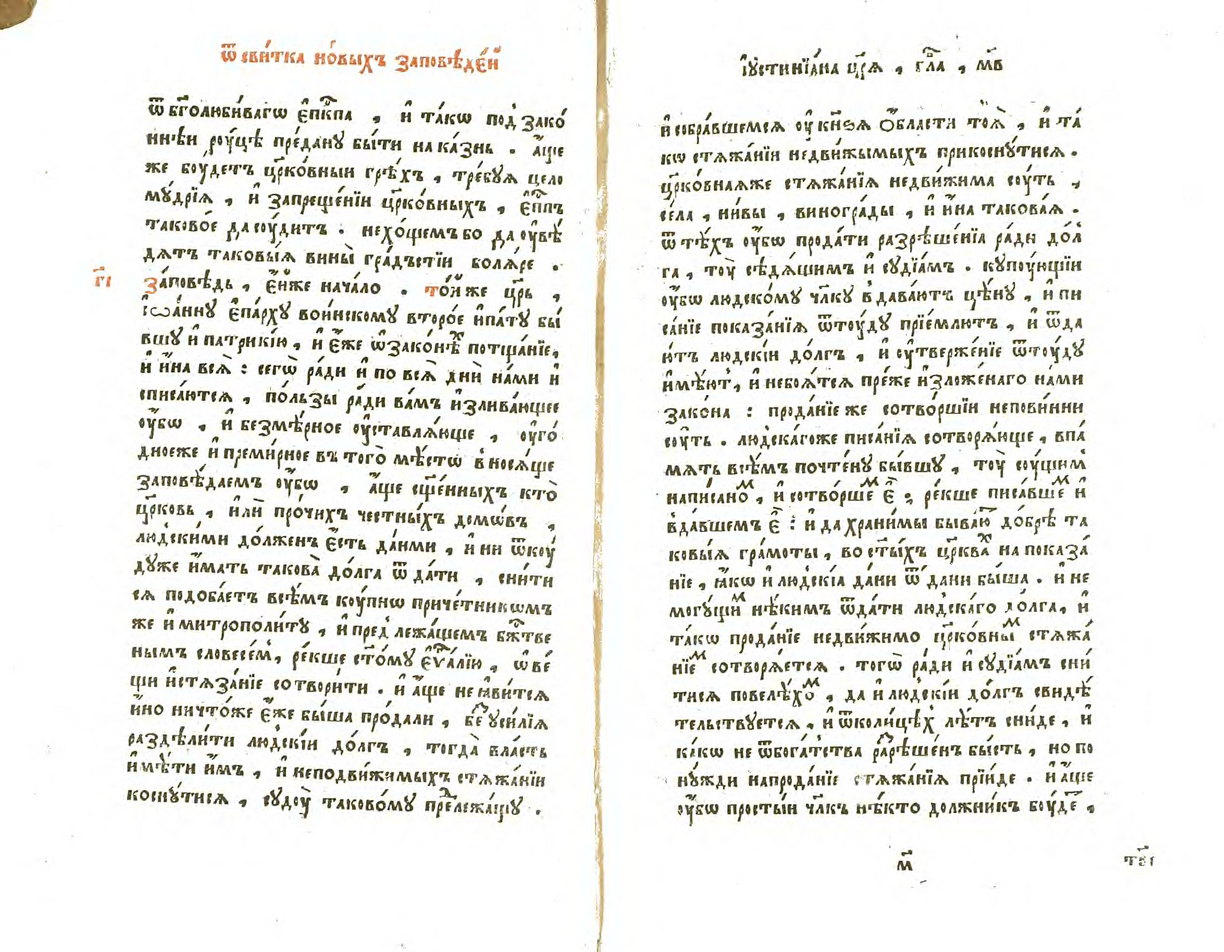 ѿ сви́тка но́выхъ заповѣде́й
ѿ бг҃олюби́вагѡ є҆пкⷭ҇па , и҆ та́кѡ под̾ зако́
ннѣи рꙋцѣ̀ пре́данꙋ бы́ти на ка́знь . а҆́ще
же бꙋ́детъ цр҃ко́вныи грѣ́хъ , тре́бꙋѧ цело
мꙋ́дрїѧ , и҆ запреще́нїи цр҃ко́вныхъ , є҆пⷭ҇пъ
таково́е да сꙋ́дитъ . не хо́щемъ бо да ᲂу҆вѣ́
дѧтъ таковы́ѧ вины̀ гра́дьстїи болѧ́ре .
г҃і
за́повѣдь , є҆́йже нача́ло . то́йже цр҃ь ,
і҆ѡа́ннꙋ є҆па́рхꙋ во́инскомꙋ второ́е и҆па́тꙋ бы́
вшꙋ и҆ патри́кїю , и҆ є҆́же ѡ҆ зако́нѣⷯ потща́нїе,
и҆ и҆́на всѧ̀ : сегѡ̀ ра́ди и҆ по всѧ̀ днѝ на́ми и҆
списа́ютсѧ , по́льзы ра́ди ва́мъ и҆злива́ющее
ᲂу҆́бѡ , и҆ безмѣ́рное ᲂу҆ставлѧ́юще , ᲂу҆го́
дноеже и҆ преми́рное въ того̀ мѣ́стѡ вносѧ́ще
заповѣ́даемъ ᲂу҆́бѡ , а҆́ще сщ҃е́нныхъ кто̀
цр҃ковь , и҆лѝ про́чихъ честны́хъ домѡ́въ ,
людскими до́лженъ є҆́сть да́ньми , и҆ ни ѿкꙋ́
дꙋже и҆́мать такова̀ до́лга ѿда́ти , сни́ти
сѧ подоба́етъ всѣ́мъ кꙋ́пнѡ приче́тникѡмъ
же и҆ митрополи́тꙋ , и҆ пред̾лежа́щемъ бжⷭ҇тве
нымъ словесе́м̾, ре́кше ст҃о́мꙋ є҆ѵⷢ҇а́лїю , ѡ҆ ве́
щи и҆стѧза́нїе сотвори́ти . и҆ а҆́ще не ꙗ҆ви́тсѧ
и҆́но ничто́же є҆́же бы́ша про́дали , беⷥ ᲂу҆си́лїѧ
раздѣли́ти людскі́и до́лгъ , тогда̀ вла́сть
и҆мѣ́ти и҆̀мъ , и҆ неподви́жимыхъ стѧжа́нїи
коснꙋ́тисѧ , сꙋдꙋ̀ таково́мꙋ преⷣлежа́щꙋ .
і҆ꙋстинїа́на цр҃ѧ , гла҃ , м҃в
и҆ собра́вшемсѧ ᲂу҆ кн҃зѧ ѻ҆́бласти тоѧ̀ , и҆ та́
кѡ стѧжа́нїи недви́жымыхъ прикоснꙋ́тисѧ .
цр҃ко́внаѧже стѧжа́нїѧ недви́жима сꙋ́ть ,
се́ла , ни́вы , виногра́ды , и҆ и҆́на такова́ѧ .
ѿ тѣ́хъ ᲂу҆́бѡ прода́ти разрѣше́нїѧ ра́ди до́л
га , тꙋ̀ сѣдѧ́щимъ и҆ сꙋдїа́мъ . кꙋпꙋ́ющїи
ᲂу҆́бѡ людско́мꙋ чл҃кꙋ вдава́ютъ цѣ́нꙋ , и҆ пи
са́нїе показа́нїѧ ѿтꙋ́дꙋ прїе́млютъ , и҆ ѿда
и́тъ людскі́и до́лгъ , и҆ ᲂу҆твержє́нїе ѿтꙋ́дꙋ
и҆мѣ́ютъ , и҆ небоѧ́тсѧ пре́же и҆зложе́наго на́ми
зако́на : прода́нїеже сотво́ршїи непови́нни
сꙋ́ть . людска́гоже писа́нїѧ сотворѧ́юще , впа́
мѧть всѣ́мъ почте́нꙋ бы́вшꙋ , тꙋ̀ сꙋ́щим̾
написаноⷨ , и҆ сотво́ршеⷨ є҆̀ : ре́кше писа́вшеⷨ и҆
вда́вшемъ є҆̀ : и҆ да храни́мы быва́юⷮ до́брѣ та
ковы́ѧ гра́моты , во ст҃ы́хъ цр҃кваⷯ на показа́
нїе , ꙗ҆́кѡ и҆ людскі́ѧ да́ни ѿда́ни бы́ша . и҆ не
могꙋ́щиⷨ нѣ́кимъ ѿда́ти людска́го до́лга, и҆
та́кѡ прода́нїе недви́жимо цр҃ко́вныⷨ стѧжа́
нїеⷨ сотворѧ́етсѧ . тогѡ̀ ра́ди и҆ сꙋдїа́мъ сни́
тисѧ повелѣ́хоⷨ , да и҆ людскі́и до́лгъ свидѣ́
тельствꙋетсѧ , и҆ ѿколи́цѣх̾ лѣ́тъ сни́де , и҆
ка́кѡ не ѿбога́тства раⷥрѣше́н бы́сть , но по
нꙋ́жди напрода́нїе стѧжа́нїѧ прїи́де . и҆ а҆́ще
ᲂу҆́бѡ просты́и чл҃къ нѣ́кто должни́къ бꙋ́деⷮ ,
м҃